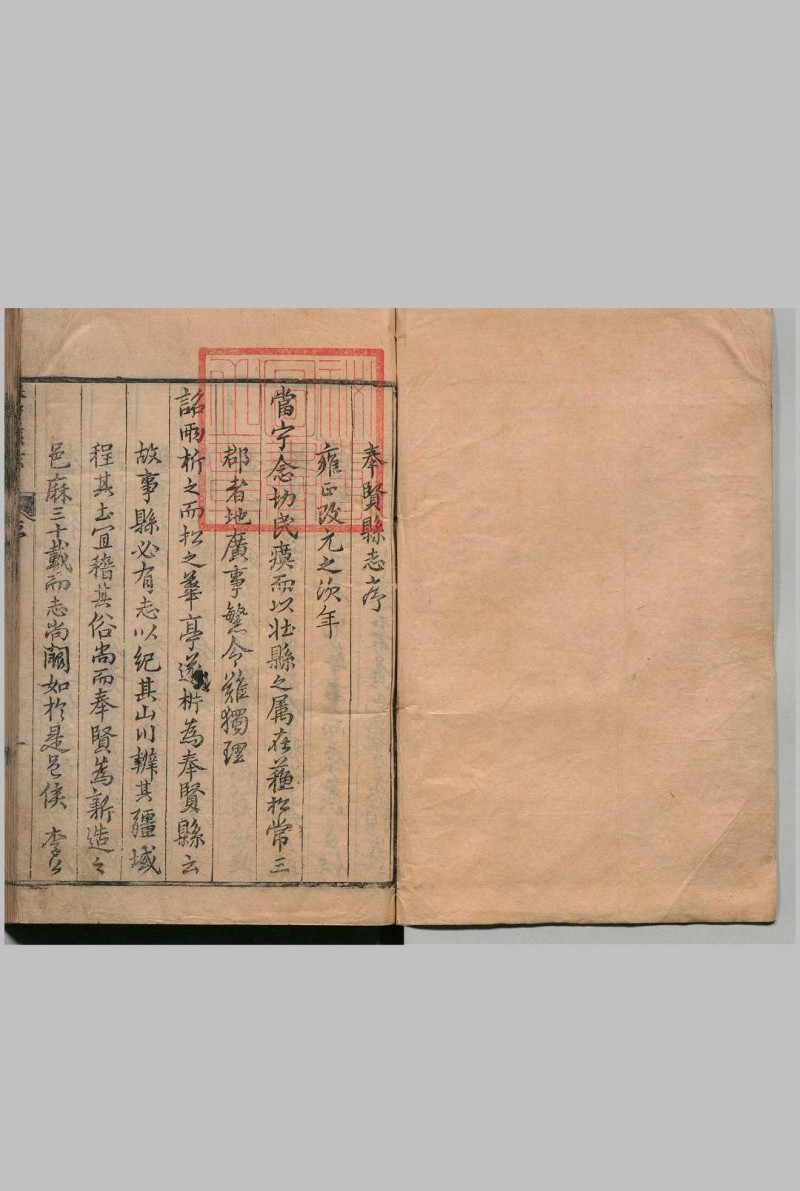 奉賢縣志序
雍正改元之次年
當宁念切民瘼而以壯縣之属在蘇松常三
郡者地廣事繁令難獨理
詔兩析之而松之華亭遂析為奉賢縣云
故事縣必有志以紀其山川辨其疆域
程其土宜稽其俗尚而奉賢為新造之
邑厤三十載而志尚闕如於是邑侯 李公